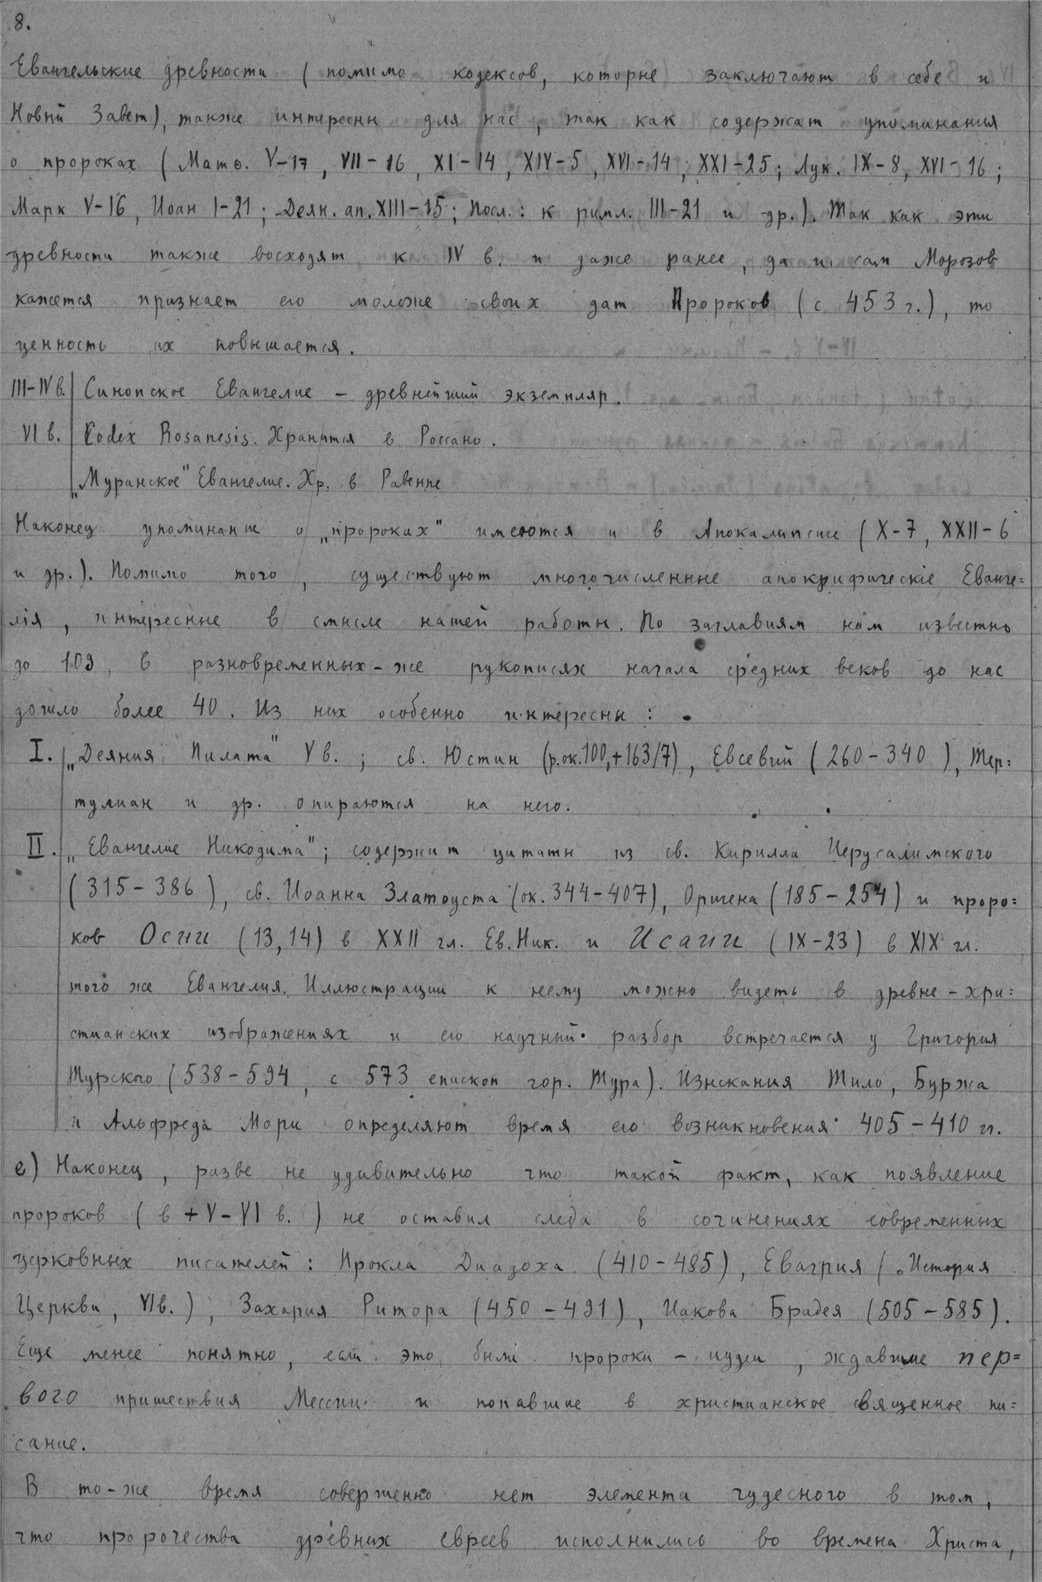 8.
Евангельские древности (помимо кодексов, которые заключают в себе и
Новый Завет), также интересны для нас, так как содержат упоминания
о пророках (Матѳ. V-17, VII-16, XI-14, XIV-5, XVI-14, XXI-25; Лук. IX-8, XVI-16;
Марк V-16, Иоан I-21; Деян. ап. XIII-15; Посл.: к римл. III-21 и др.). Так как эти
древности также восходят к IV в. и даже ранее, да и сам Морозов
кажется признает его моложе своих дат Пророков (с 453 г.), то
ценность их повышается.
III-IV в. Синопское Евангелие – древнейший экземпляр.
VI в. Codex Rosanesis. Хранится в Россано.
„Муранское" Евангелие. Хр. в Равенне
Наконец упоминание о „пророках" имеются и в Апокалипсисе (X-7, XXII-6
и др.). Помимо того, существуют многочисленные апокрифическіе Еванге=
лія, интересные в смысле нашей работы. По заглавиям нам известно
до 109, в разновременных-же рукописях начала средних веков до нас
дошло более 40. Из них особенно интересны:
I. „Деяния Пилата" V в.; св. Юстин (р.ок.100,+163/7), Евсевий (260-340), Тер=
тулиан и др. опираются на него.
II. „Евангелие Никодима"; содержит цитаты из св. Кирилла Иерусалимского
(315-386), св. Иоанна Златоуста (ок. 344-407), Оригена (185-254) и проро=
ков Осии (13,14) в XXII гл. Ев. Ник. и Исаии (IX-23) в XIX гл.
того же Евангелия. Иллюстрации к нему можно видеть в древне-хри=
стианских изображениях и его научный разбор встречается у Григория
Турского (538-594, с 573 епископ гор. Тура). Изыскания Тило, Буржа
и Альфреда Мори определяют время его возникновения 405-410 гг.
е) Наконец, разве не удивительно что такой факт, как появление
пророков (в +V-VI в.) не оставил следа в сочинениях современных
церковных писателей: Прокла Диадоха (410-485), Евагрия („История
Церкви, VI в.), Захария Ритора (450-491), Иакова Брадея (505-585).
Еще менее понятно, если это были пророки – иудеи, ждавшие пер=
вого пришествия Мессии и попавшие в христианское священное пи=
сание.
В то-же время совершенно нет элемента чудесного в том,
что пророчества древних евреев исполнились во времена Христа,